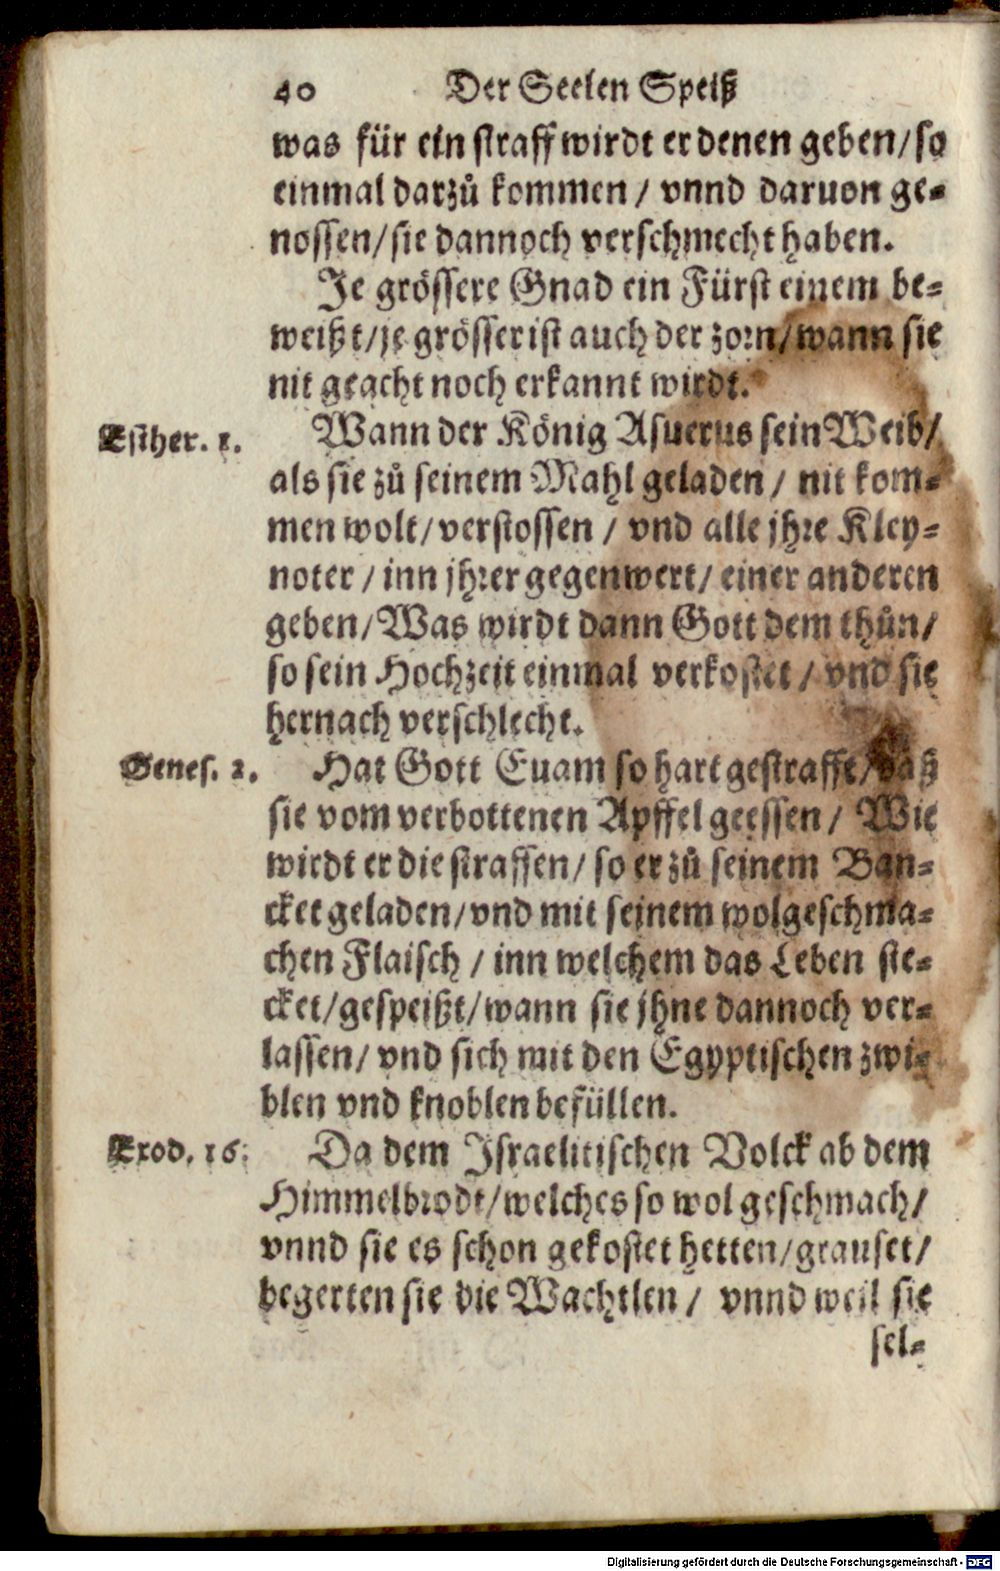 40 Der Seelen Speiß
was für ein straff wirdt er denen geben/so
einmal darzů kommen / vnnd daruon ge-
nossen/sie dannoch verschmecht haben.
Je grössere Gnad ein Fürst einem be-
weißt/je grösser ist auch der zorn/wann sie
nit geacht noch erkannt wirdt.
Esther. 1. Wann der König Asuerus sein Weib/
als sie zů seinem Mahl geladen / nit kom-
men wolt/verstossen / vnd alle jhre Kley-
noter / inn jhrer gegenwert/ einer anderen
geben/Was wirdt dann Gott dem thůn/
so sein Hochzeit einmal verkostet / vnd sie
hernach verschlecht.
Genes. 2. Hat Gott Euam so hart gestrafft/daß
sie vom verbottenen Apffel geessen/ Wie
wirdt er die straffen/ so er zů seinem Ban-
cket geladen/vnd mit seinem wolgeschma-
chen Flaisch / inn welchem das Leben ste-
cket/gespeißt/wann sie jhne dannoch ver-
lassen/ vnd sich mit den Egyptischen zwi-
blen vnd knoblen befüllen.
Exod. 16. Da dem Israelitischen Volck ab dem
Himmelbrodt/welches so wol geschmach/
vnnd sie es schon gekostet hetten/grauset/
begerten sie die Wachtlen / vnnd weil sie
sel-
Digitalisierung gefördert durch die Deutsche Forschungsgemeinschaft - DFG